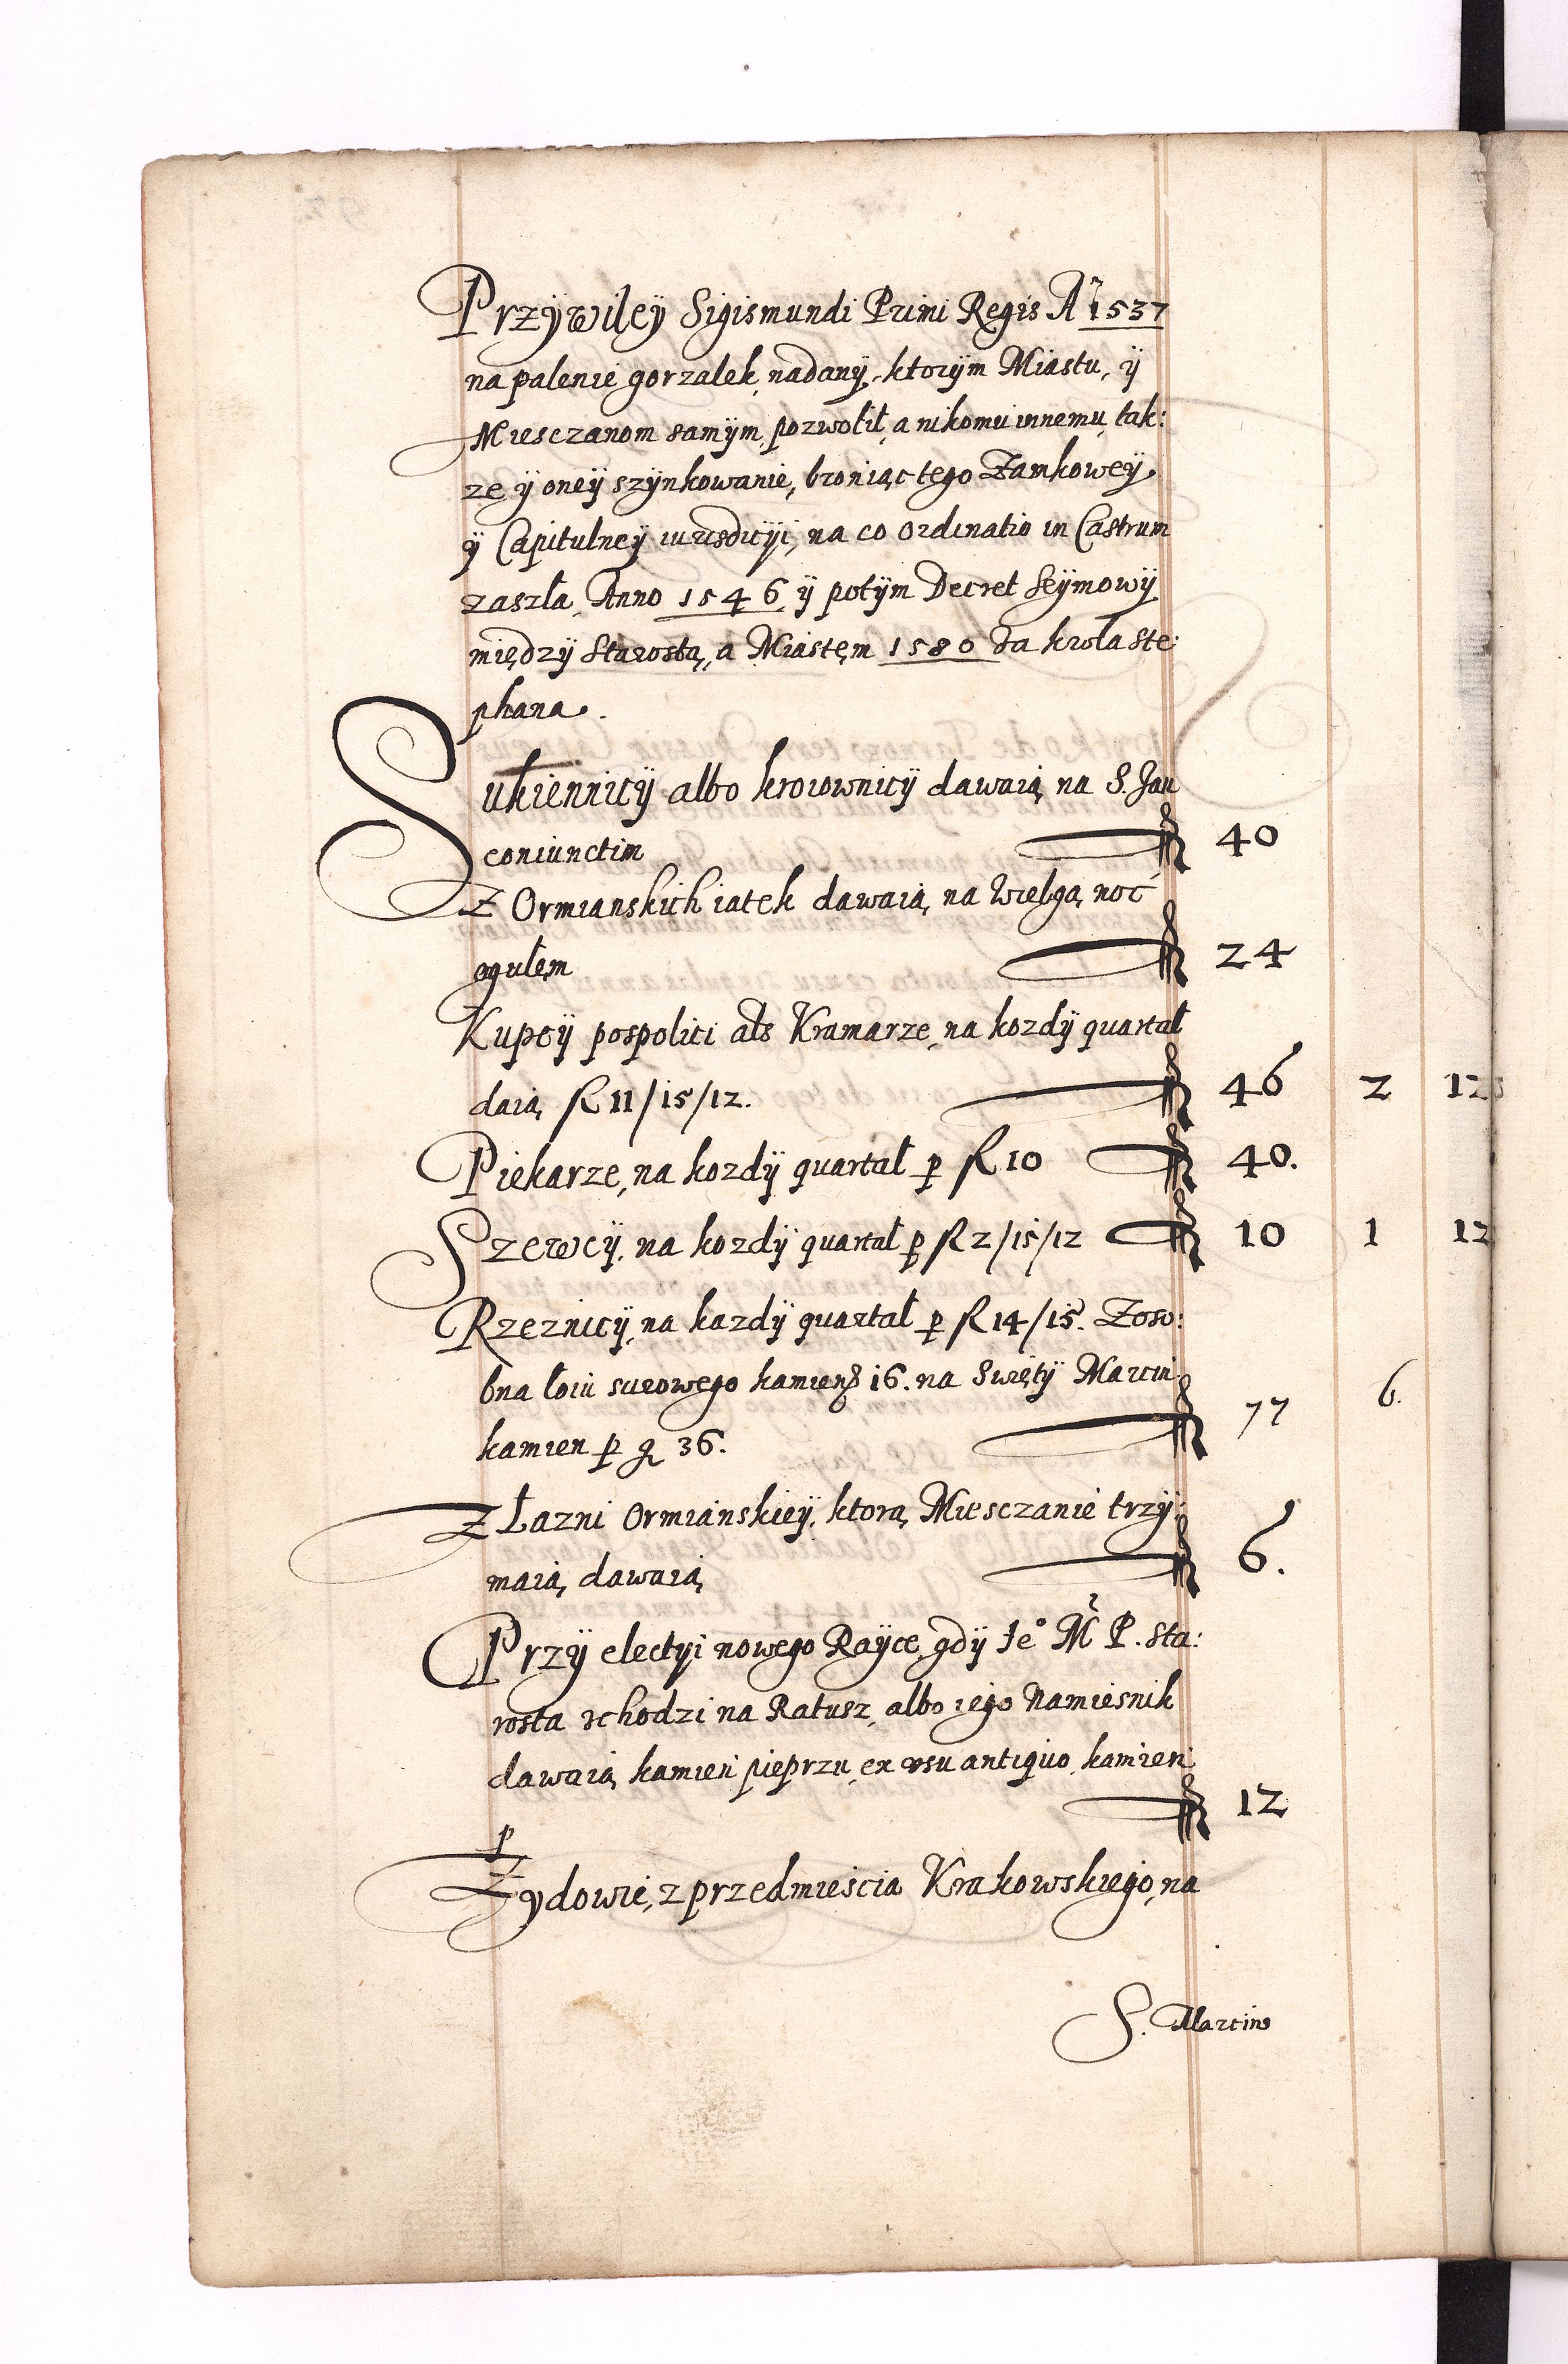 Przÿwiley Sigismundi Primi Regis Aº 1537
na palenie gorzalek, nadanÿ, ktorÿm Miastu, ÿ
Miesczanom samÿm, pozwolił, a nikomu innemu, tak:
ze ÿ oneÿ szÿnkowanie, broniąc tego Zamkoweÿ
ÿ Capitulneÿ iurisdicÿi, na co ordinatio in Castrum
zaszła, Anno 1546, ÿ potÿm Decret Seÿmowÿ
międzÿ Starostą, a Miastęm 1580 za krola Ste:
phana.
Sukiennicÿ albo krorownicÿ dawaią na S. Jan
coniunctim fl 40
Z Ormianskich iatek dawaią na Wielgą noc
ogułem fl 24
Kupcÿ pospolici als Kramarze, na kozdÿ quartał
daią fl 11/15/12. fl 46 2 12
Piekarze, na kozdÿ quartał p fl 10 fl 40.
Szewcÿ, na kozdÿ quartał p fl 2/15/12 fl 10 1 12
Rzeznicÿ, na kazdÿ quartał p fl 14/15. Zoso:
bna łoiu surowego kamieni 16. na Swiętÿ Marcin
kamien p g 36. fl 77 6.
Z Łazni Ormianskieÿ, ktorą Miesczanie trzÿ:
maią, dawaią fl 6.
Przÿ electÿi nowego Raÿce, gdÿ Jeº Mć P. Sta:
rosta schodzi na Ratusz, albo iego Namiesnik
dawaią kamien pieprzu, ex usu antiquo, kamien
p fl 12
Zydowie, z przedmiescia Krakowskiego, na
S. Marcin